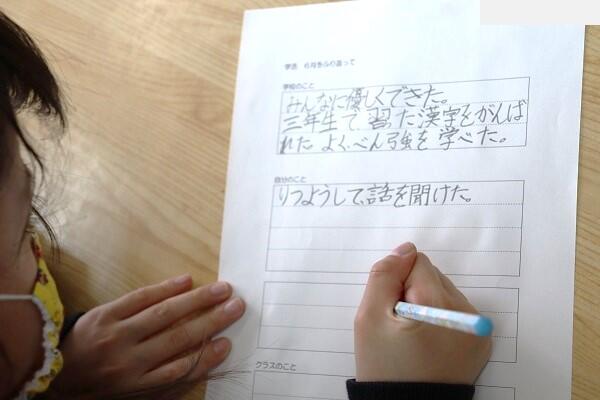 学活 6月をふり返って
学校のこと
みんなに優しくできた。
三年生で習った漢字をがんば
れた。よくべん強を学べた。
自分のこと
りつようして、話を聞けた。
クラスのこと